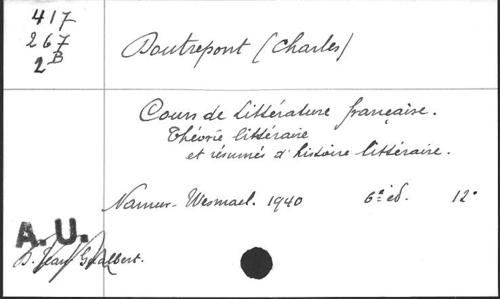 417
267
2B
Doutrepont (Charles)
Cours de Littérature française.
Théorie littéraire
et résumés d'histoire littéraire.
Namur - Wesmael. 1940 6e éd. 12°
A.U.
Jean